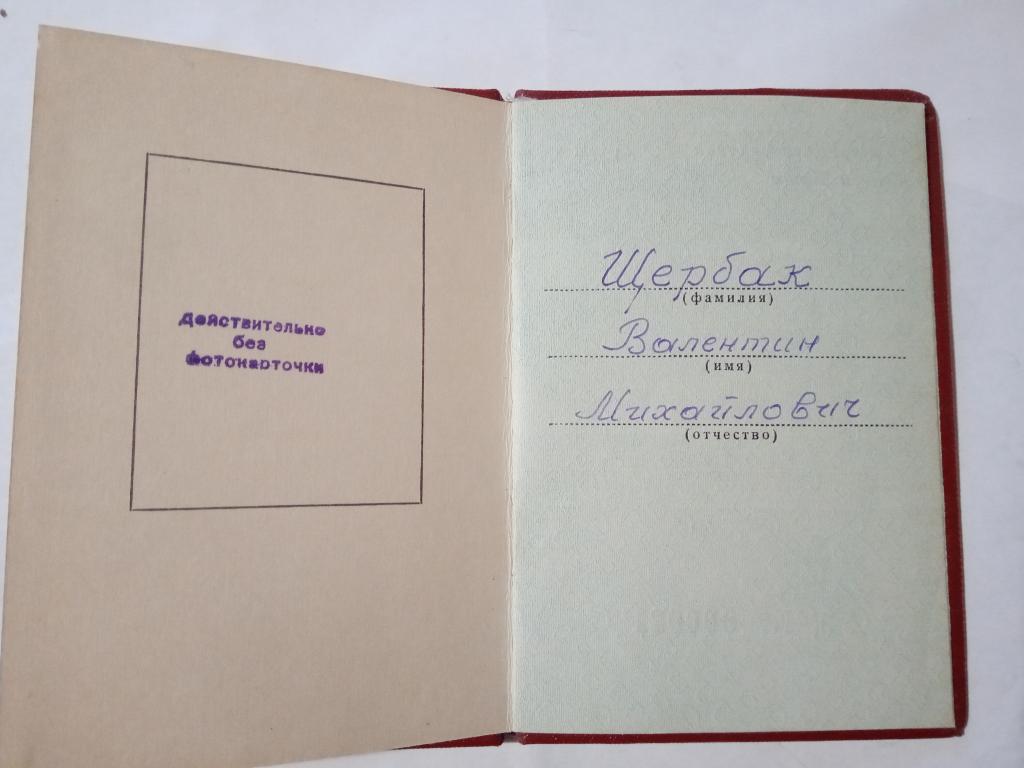 Действительно
без
фотокарточки
Щербак
(фамилия)
Валентин
(имя)
Михайлович
(отчество)